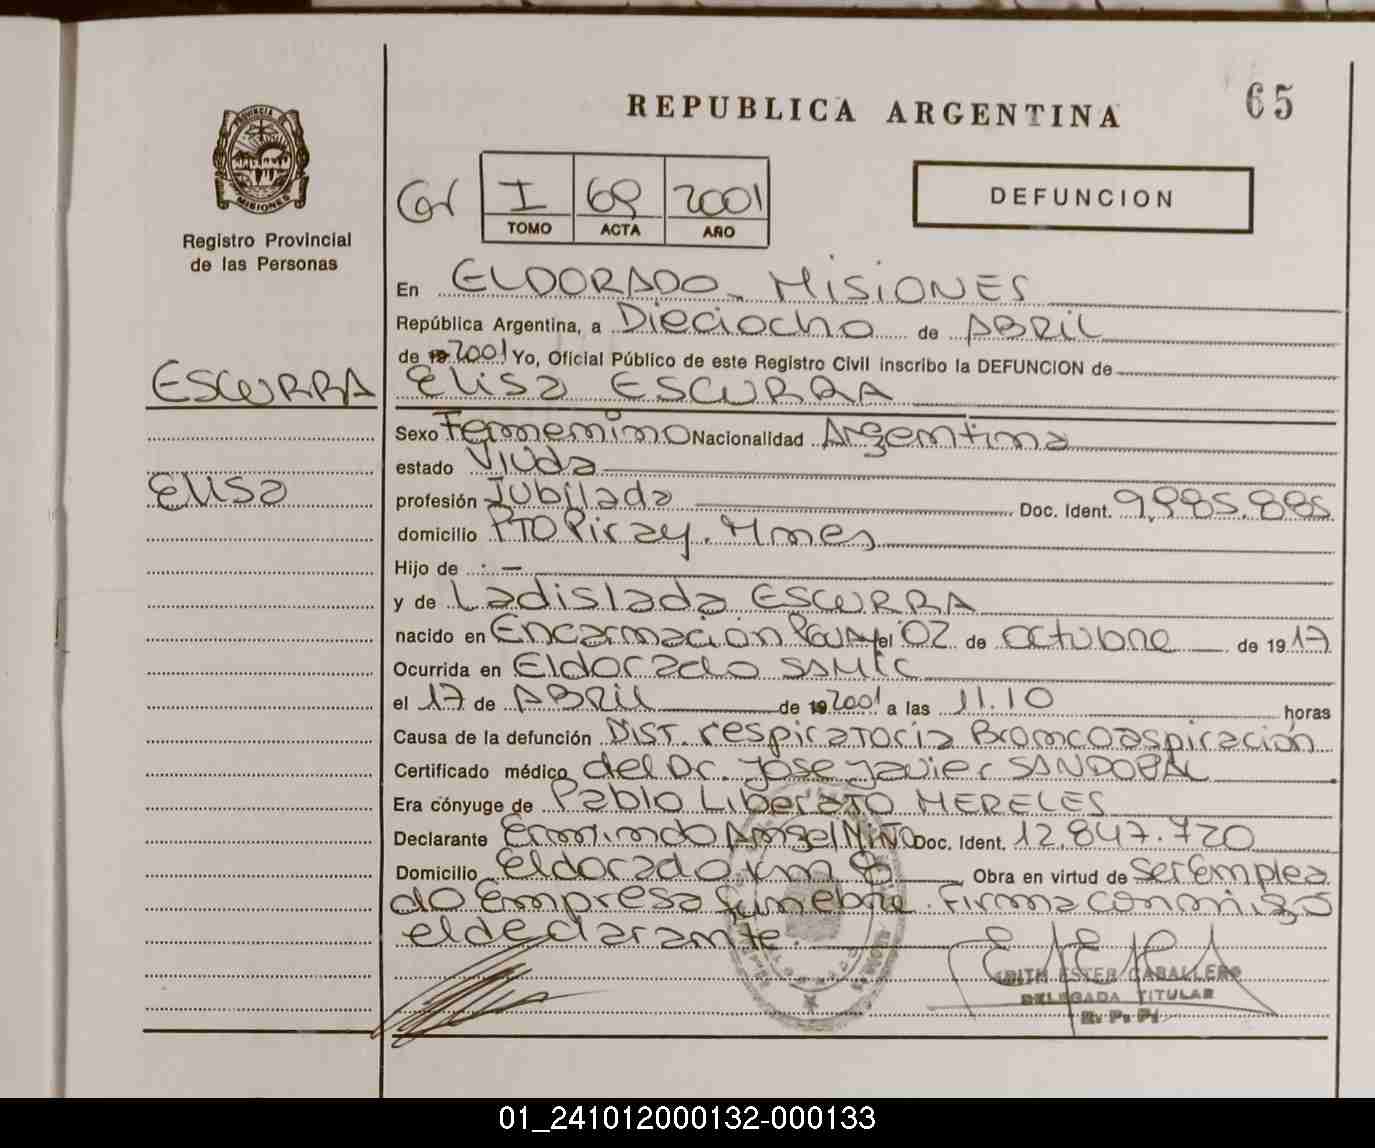 65
REPUBLICA ARGENTINA
PROVINCIA DE
MISIONES
Registro Provincial
de las Personas
I 69 2001
TOMO ACTA AÑO
DEFUNCION
En ELDORADO - MISIONES
República Argentina, a Dieciocho de ABRIL
de 19 2001 Yo, Oficial Público de este Registro Civil inscribo la DEFUNCION de
ESCURRA Elisa ESCURRA
Sexo Femenino Nacionalidad Argentina
estado Viuda
Elisa
profesión Jubilada Doc. Ident. 9.985.885
domicilio PTO Piray. Mnes
Hijo de . -
y de Ladislada ESCURRA
nacido en Encarnación Pguay el 02 de octubre de 1917
Ocurrida en Eldorado SAMIC
el 17 de ABRIL de 19 2001 a las 11.10 horas
Causa de la defunción DIST. respiratoria Broncoaspiración
Certificado médico del Dr. Jose Javier SANDOBAL
Era cónyuge de Pablo Liberato MERELES
Declarante Ermindo Angel NIÑO Doc. Ident. 12.847.720
Domicilio Eldorado km 8 Obra en virtud de ser Emplea
do Empresa fúnebre. Firma conmigo
el declarante.
EDITH ESTER CABALLERO
DELEGADA TITULAR
R. P. P.
01_241012000132-000133